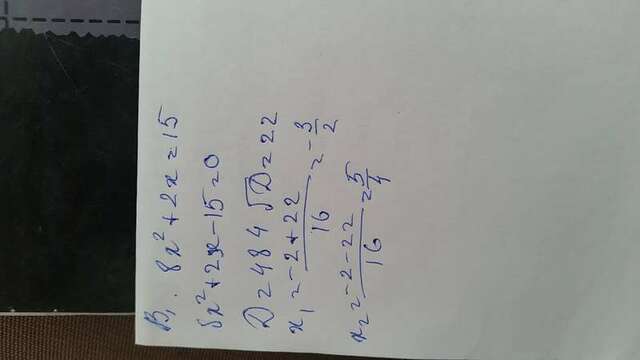 B₁. 8x² + 2x = 15
8x² + 2x - 15 = 0
D = 484 √D = 22
x₁ = (-2 + 22)/16 = -3/2
x₂ = (-2 - 22)/16 = 5/4